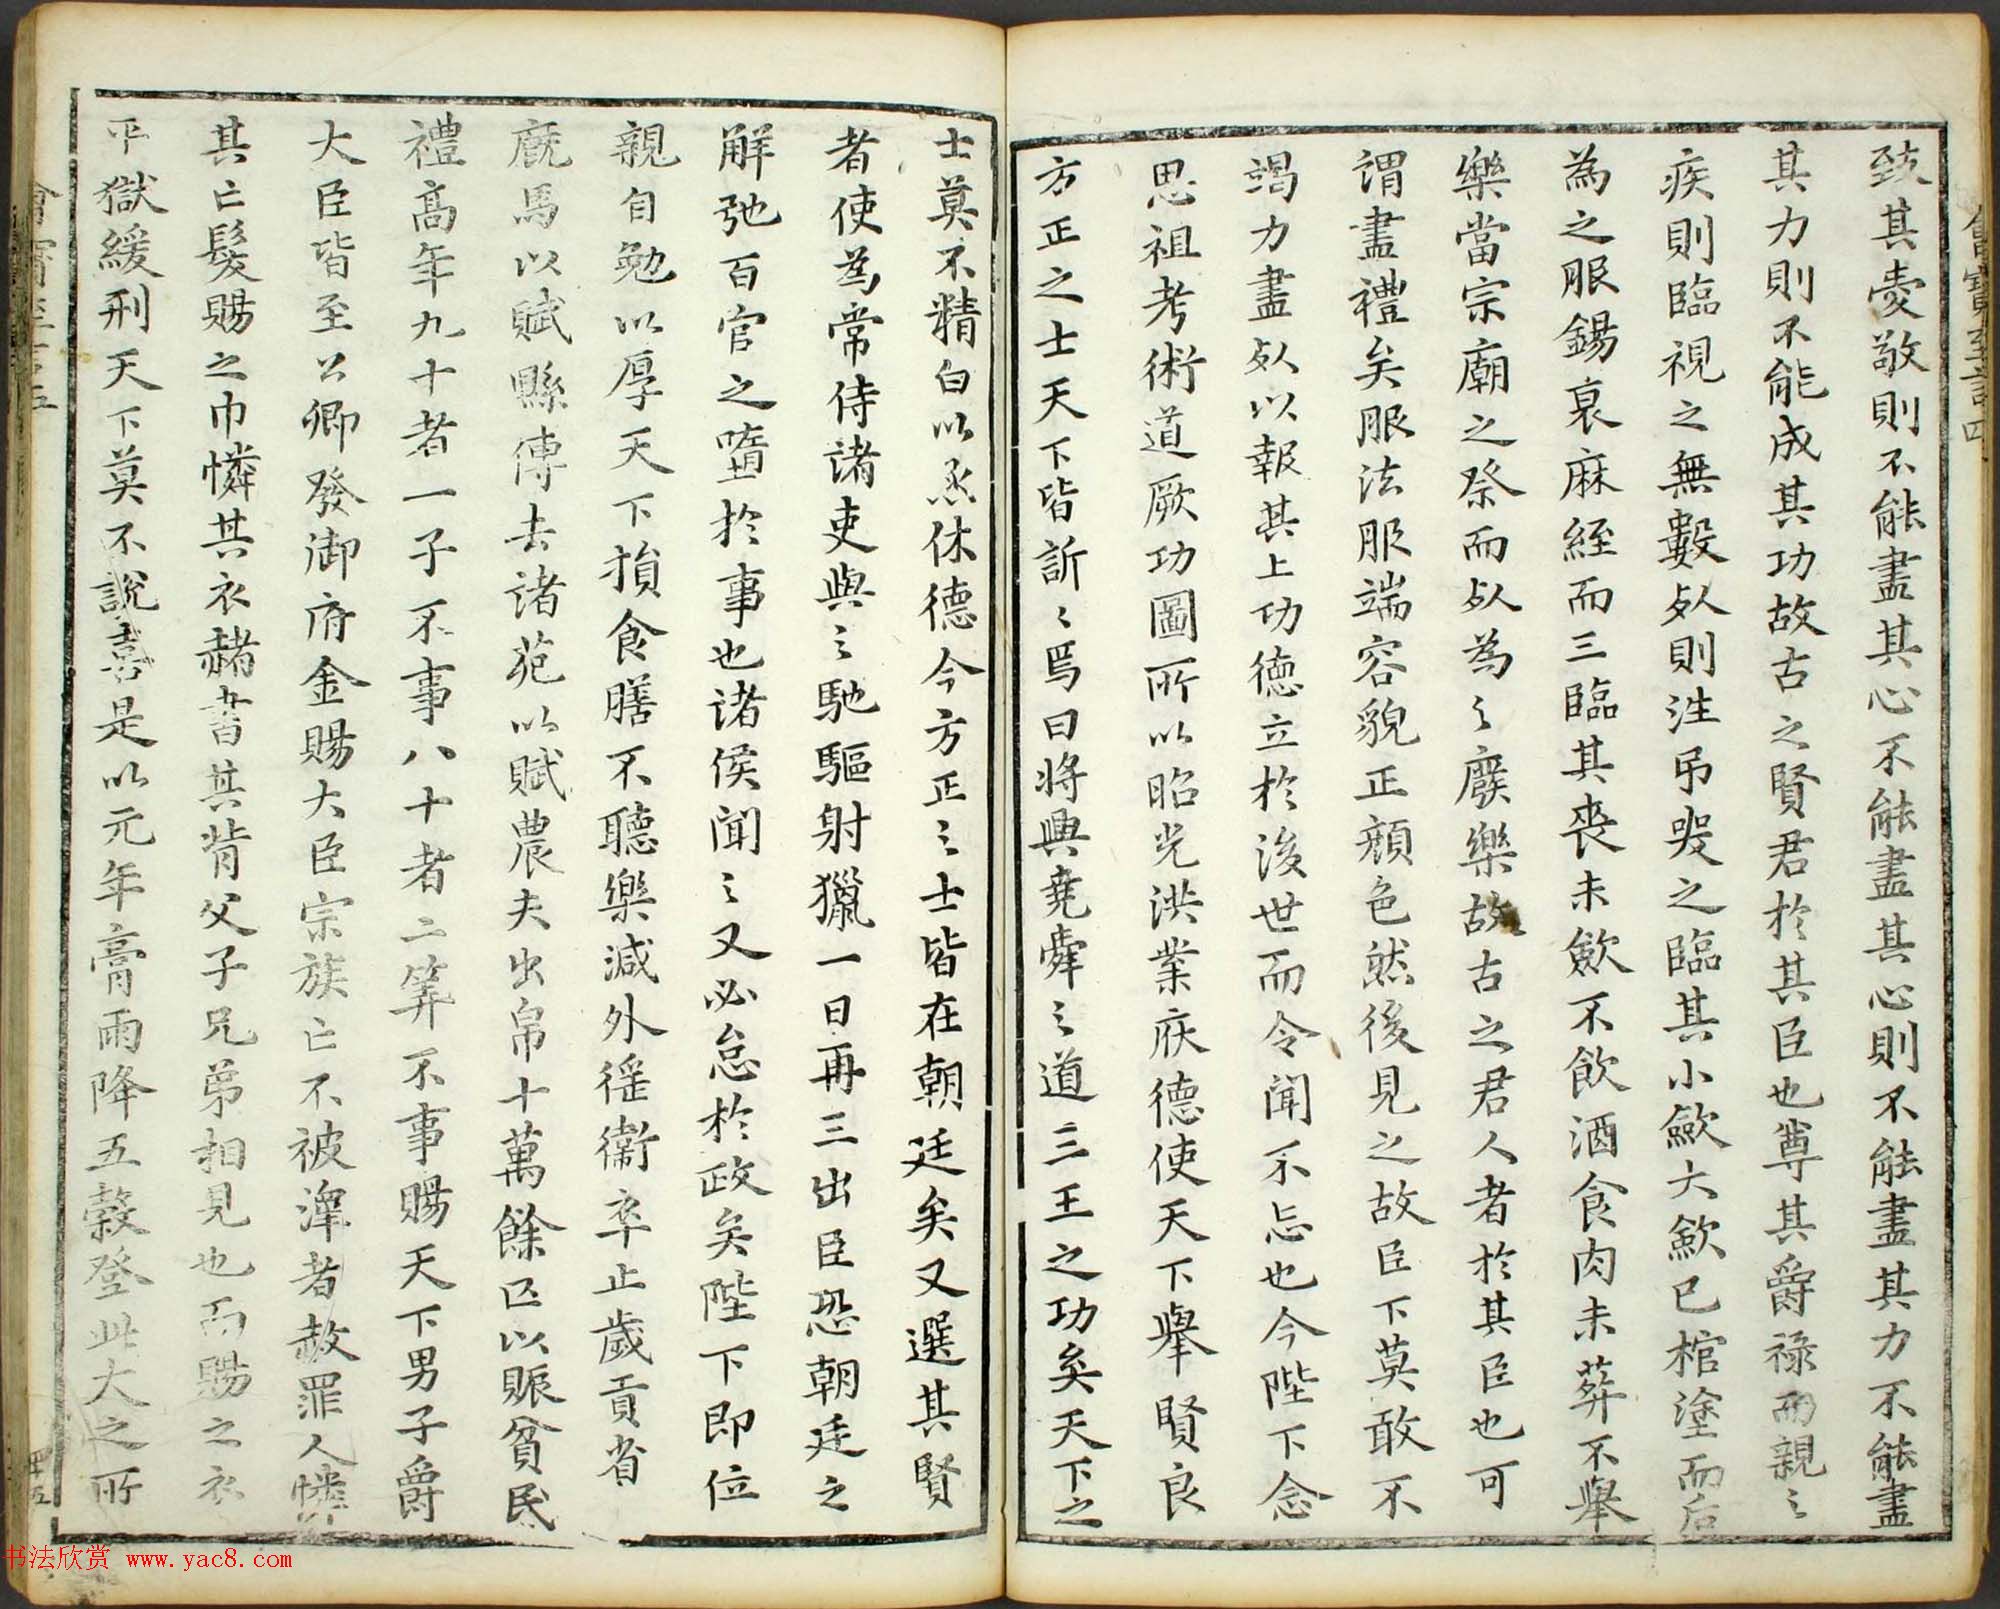 致其愛敬則不能盡其心不能盡其心則不能盡其力不能盡
其力則不能成其功故古之賢君於其臣也尊其爵祿而親之
疾則臨視之無數死則往吊哭之臨其小歛大歛已棺塗而后
為之服錫衰麻絰而三臨其喪未歛不飲酒食肉未葬不舉
樂當宗廟之祭而死為之廢樂故古之君人者於其臣也可
謂盡禮矣服法服端容貌正顏色然後見之故臣下莫敢不
竭力盡死以報其上功德立於後世而令聞不忘也今陛下念
思祖考術道厥功圖所以昭光洪業庥德使天下舉賢良
方正之士天下皆訢〻焉曰將興堯舜之道三王之功矣天下之
士莫不精白以承休德今方正之士皆在朝廷矣又選其賢
者使為常侍諸吏與之馳驅射獵一日再三出臣恐朝廷之
解弛百官之墮於事也諸侯聞之又必怠於政矣陛下即位
親自勉以厚天下損食膳不聽樂減外徭衛卒止歲貢省
廐馬以賦縣傳去諸苑以賦農夫出帛十萬餘匹以賑貧民
禮高年九十者一子不事八十者二筭不事賜天下男子爵
大臣皆至公卿發御府金賜大臣宗族亡不被澤者赦罪人憐
其亡髮賜之巾憐其衣赭書其背父子兄弟相見也而賜之衣
平獄緩刑天下莫不說喜是以元年膏雨降五穀登此大之所
書法欣赏 www.yac8.com